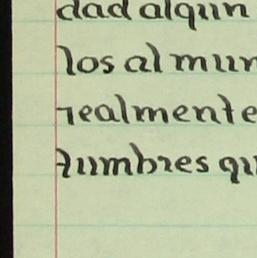 dad algun
los al mun
realmente
tumbres qu